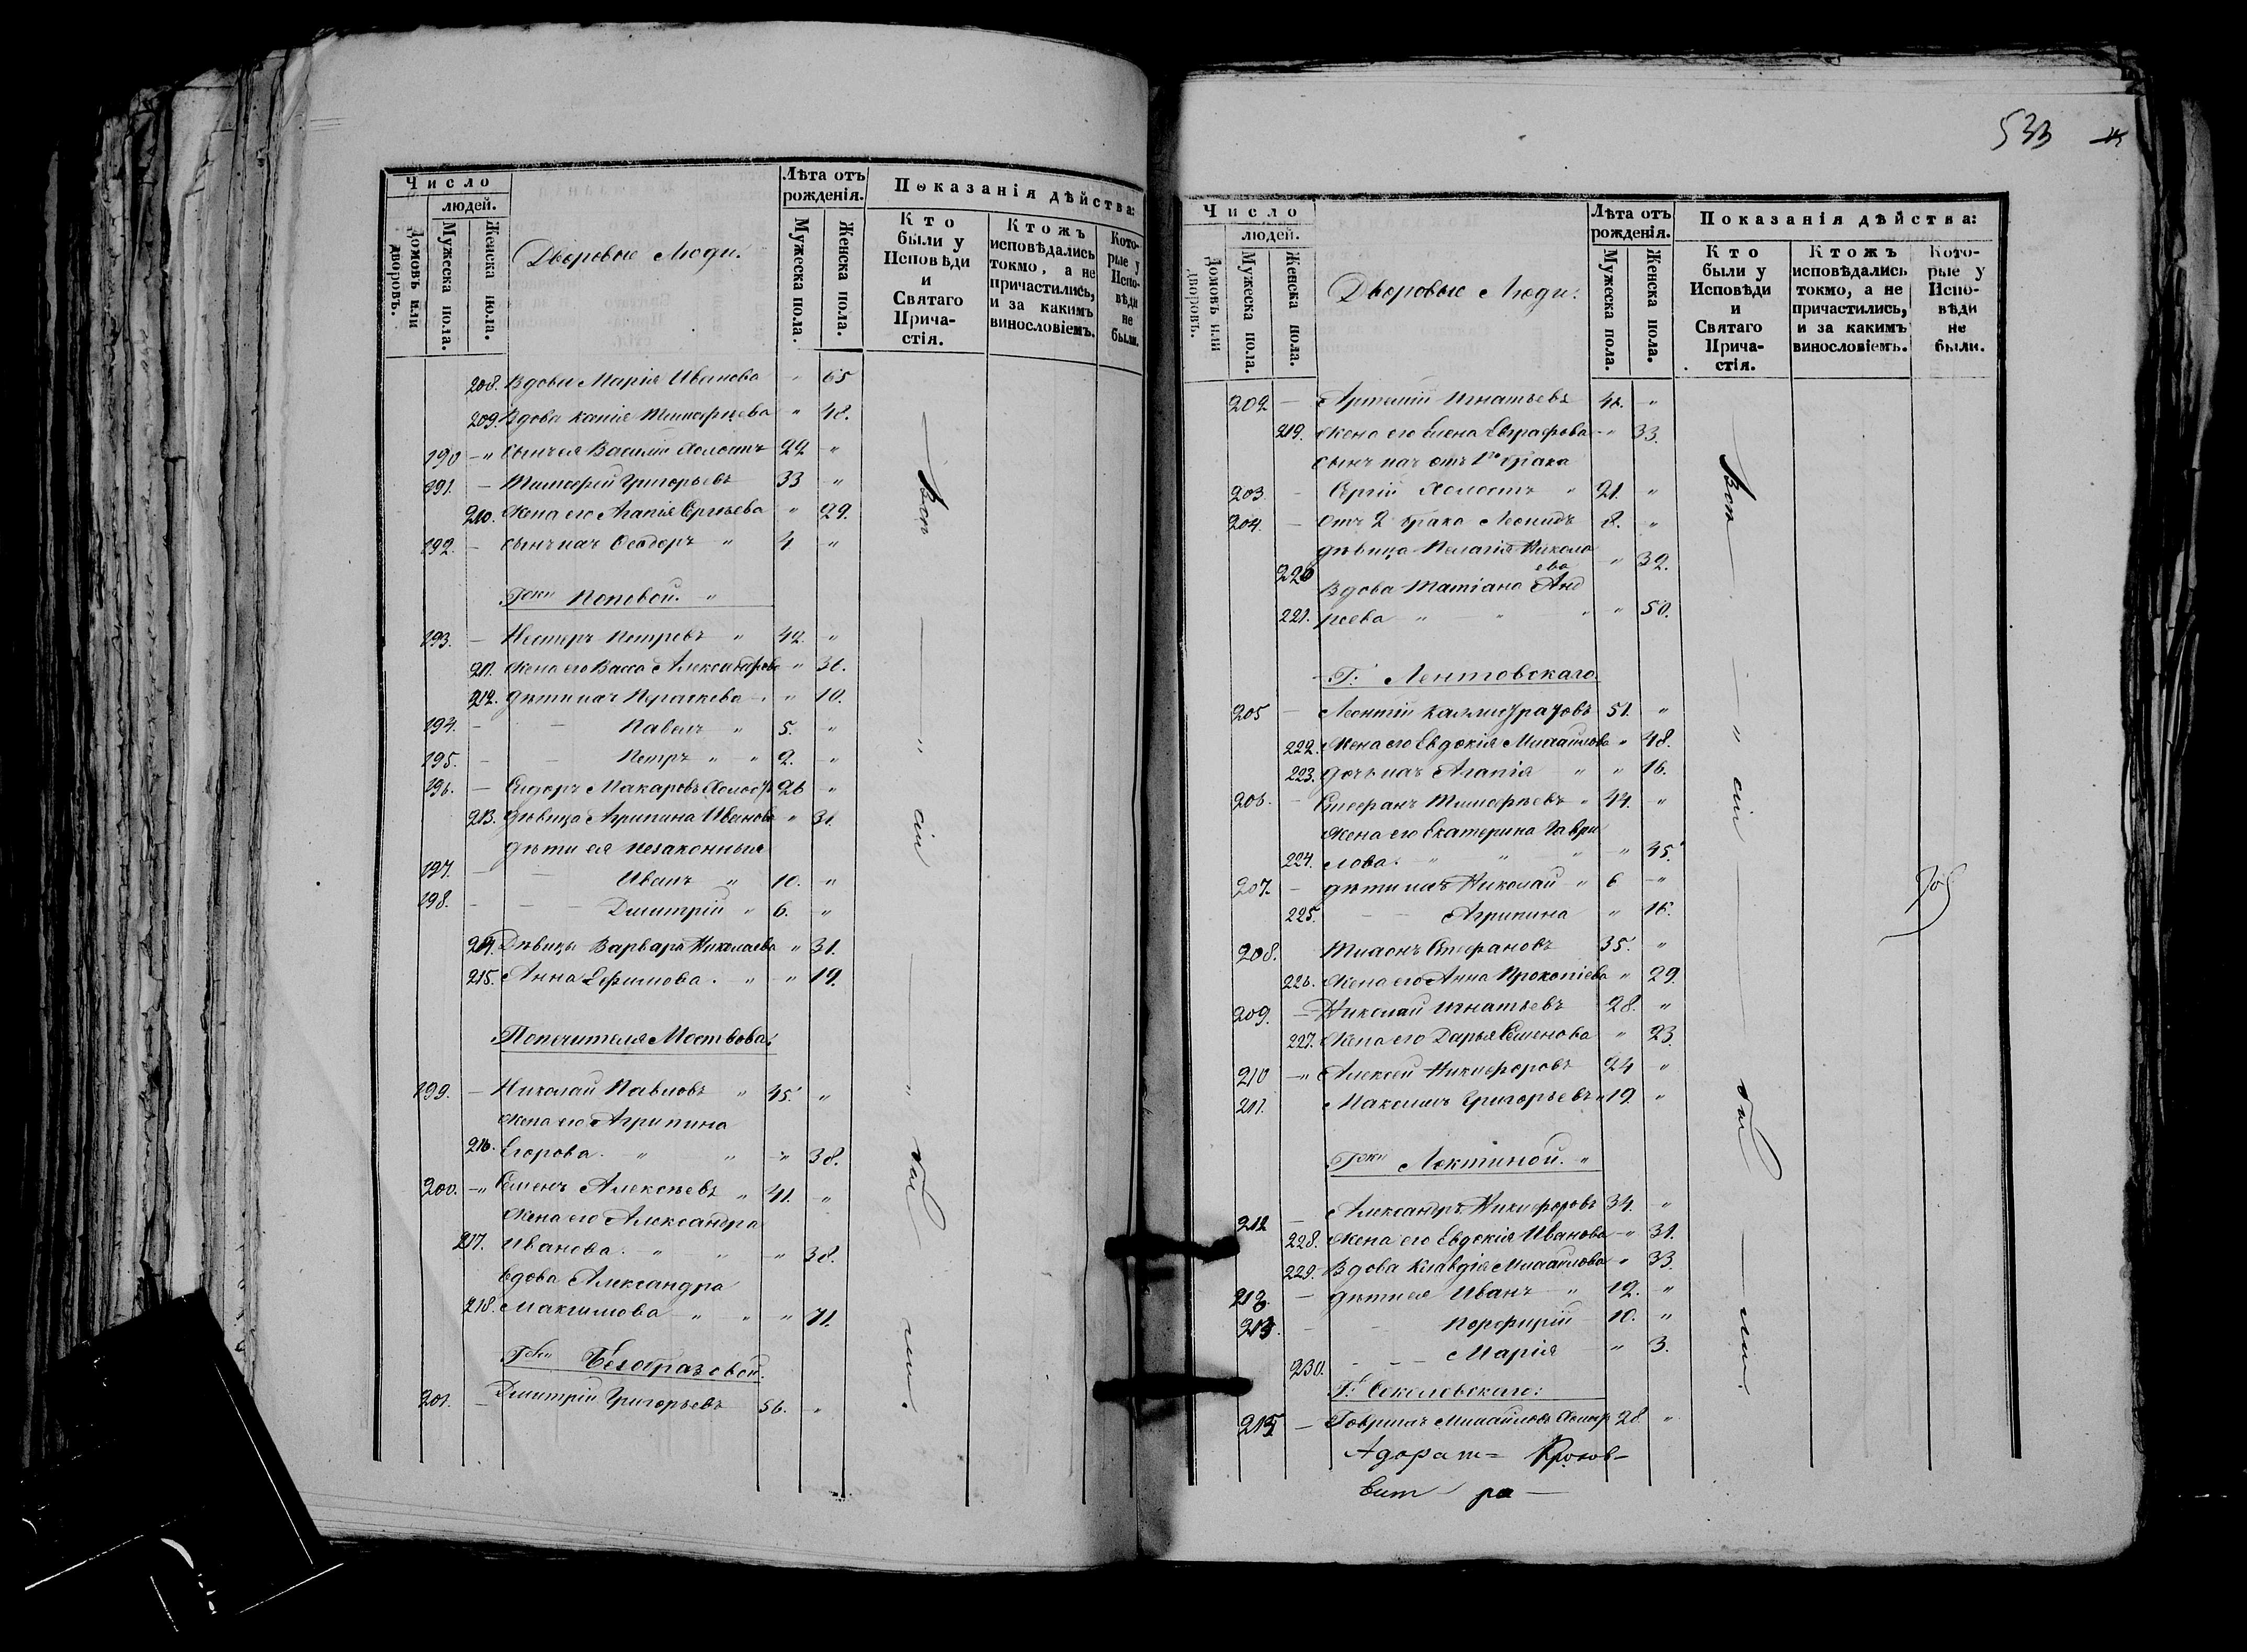 Число
людей.
Домовъ или дворовъ.
Мужеска пола.
Женска пола.
Дворовые Люди.
Лѣта отъ рожденія.
Мужеска пола.
Женска пола.
Показанія дѣйства:
Кто были у Исповѣди и Святаго Причастія.
Ктожъ исповѣдались токмо, а не причастились, и за какимъ винословіемъ.
Которые у Исповѣди не были.
208. Вдова Марія Иванова " 65
209. Вдова Тимофеева " 48.
190 -" сынъ ея Василій Холостъ 22 "
191. - Тимофей Григорьевъ 33 "
210. Жена его Агапія " 29.
192. - сынъ ихъ Ѳеодоръ " 4 "
Гжи Поповой. "
193. - Нестеръ Петровъ " 42. "
211. Жена его Васса Александрова " 36.
212. дѣти ихъ Параскева " 10.
194. - - Павелъ " 5. "
195. - - Петръ " " 2. "
196. - Сидоръ Макаровъ Холостъ 26 "
213. дѣвица Агрипина Иванова " 31.
дѣти ея незаконныя
197. - - Иванъ " 10. "
198. - - - Дмитрій " 6. "
214. Дѣвицы Варвара Николаева " 31.
215. Анна Ефимова. " " 19.
Попечителя
199. - Николай Павловъ " 45. "
Жена его Агрипина
216. Егорова. " " " 38.
200. -" Семенъ Алексѣевъ " 41. "
Жена его Александра
217. Иванова. " " " 38.
Вдова Александра
218. Максимова " " " 71.
Гжи Безобразовой.
201. - Дмитрій Григорьевъ 56. "
533
Число
людей.
Домовъ или дворовъ.
Мужеска пола.
Женска пола.
Дворовые Люди.
Лѣта отъ рожденія.
Мужеска пола.
Женска пола.
Показанія дѣйства:
Кто были у Исповѣди и Святаго Причастія.
Ктожъ исповѣдались токмо, а не причастились, и за какимъ винословіемъ.
Которые у Исповѣди не были.
202 - Артемій Игнатьевъ "
219. Жена его Елена Евграфова " 33.
сынъ ихъ отъ 1го брака
203. - Сергій Холостъ " 21. "
204. - Отъ 2 брака Леонидъ 8. "
дѣвица Пелагія Никола
220 ева " 32.
Вдова Татіана Анд
221. реева " " " " 50.
Г. Лентовскаго.
205 - Леонтій Каллистратовъ 51. "
222. Жена его Евдокія Михайлова " 48.
223. дочь ихъ Агапія " " 16.
206. - Стефанъ Тимофѣевъ " 44. "
Жена его Екатерина Гаври
224. лова. " " " " 45.
207. - дѣти ихъ Николай " 6 "
225. - - Агрипина " 16.
208. Тихонъ Стефановъ 35. "
226. Жена его Анна Прокопіева " 29.
209. - Николай Игнатьевъ 28. "
227. Жена его Дарья Семенова " 23.
210 -" Алексѣй Никифоровъ 24 "
211. Максимъ Григорьевъ " 19. "
Гжи Локтиной. "
212 - Александръ Никифоровъ 34. "
228. Жена его Евдокія Иванова " 31.
229. Вдова Клавдія Михайлова " 33.
213. - дѣти ея Иванъ " 12. "
214. - - Порфирій 10. "
230. - - - Марія " 3.
Г. Соколовскаго:
215 - Гавріилъ Михайловъ 28 "